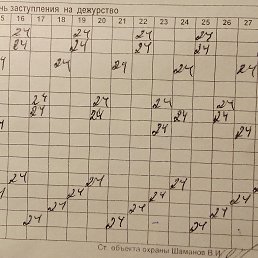 нь заступления на дежурство
5 16 17 18 19 20 21 22 23 24 25 26 27
24 24 24 24
24 24 24 24
24 24 24 24
24 24 24 24
24 24 24 24
24 24 24
24 24 24
24 24 24
24 24 24
24 24 24 24
Ст. объекта охраны Шаманов В.И.